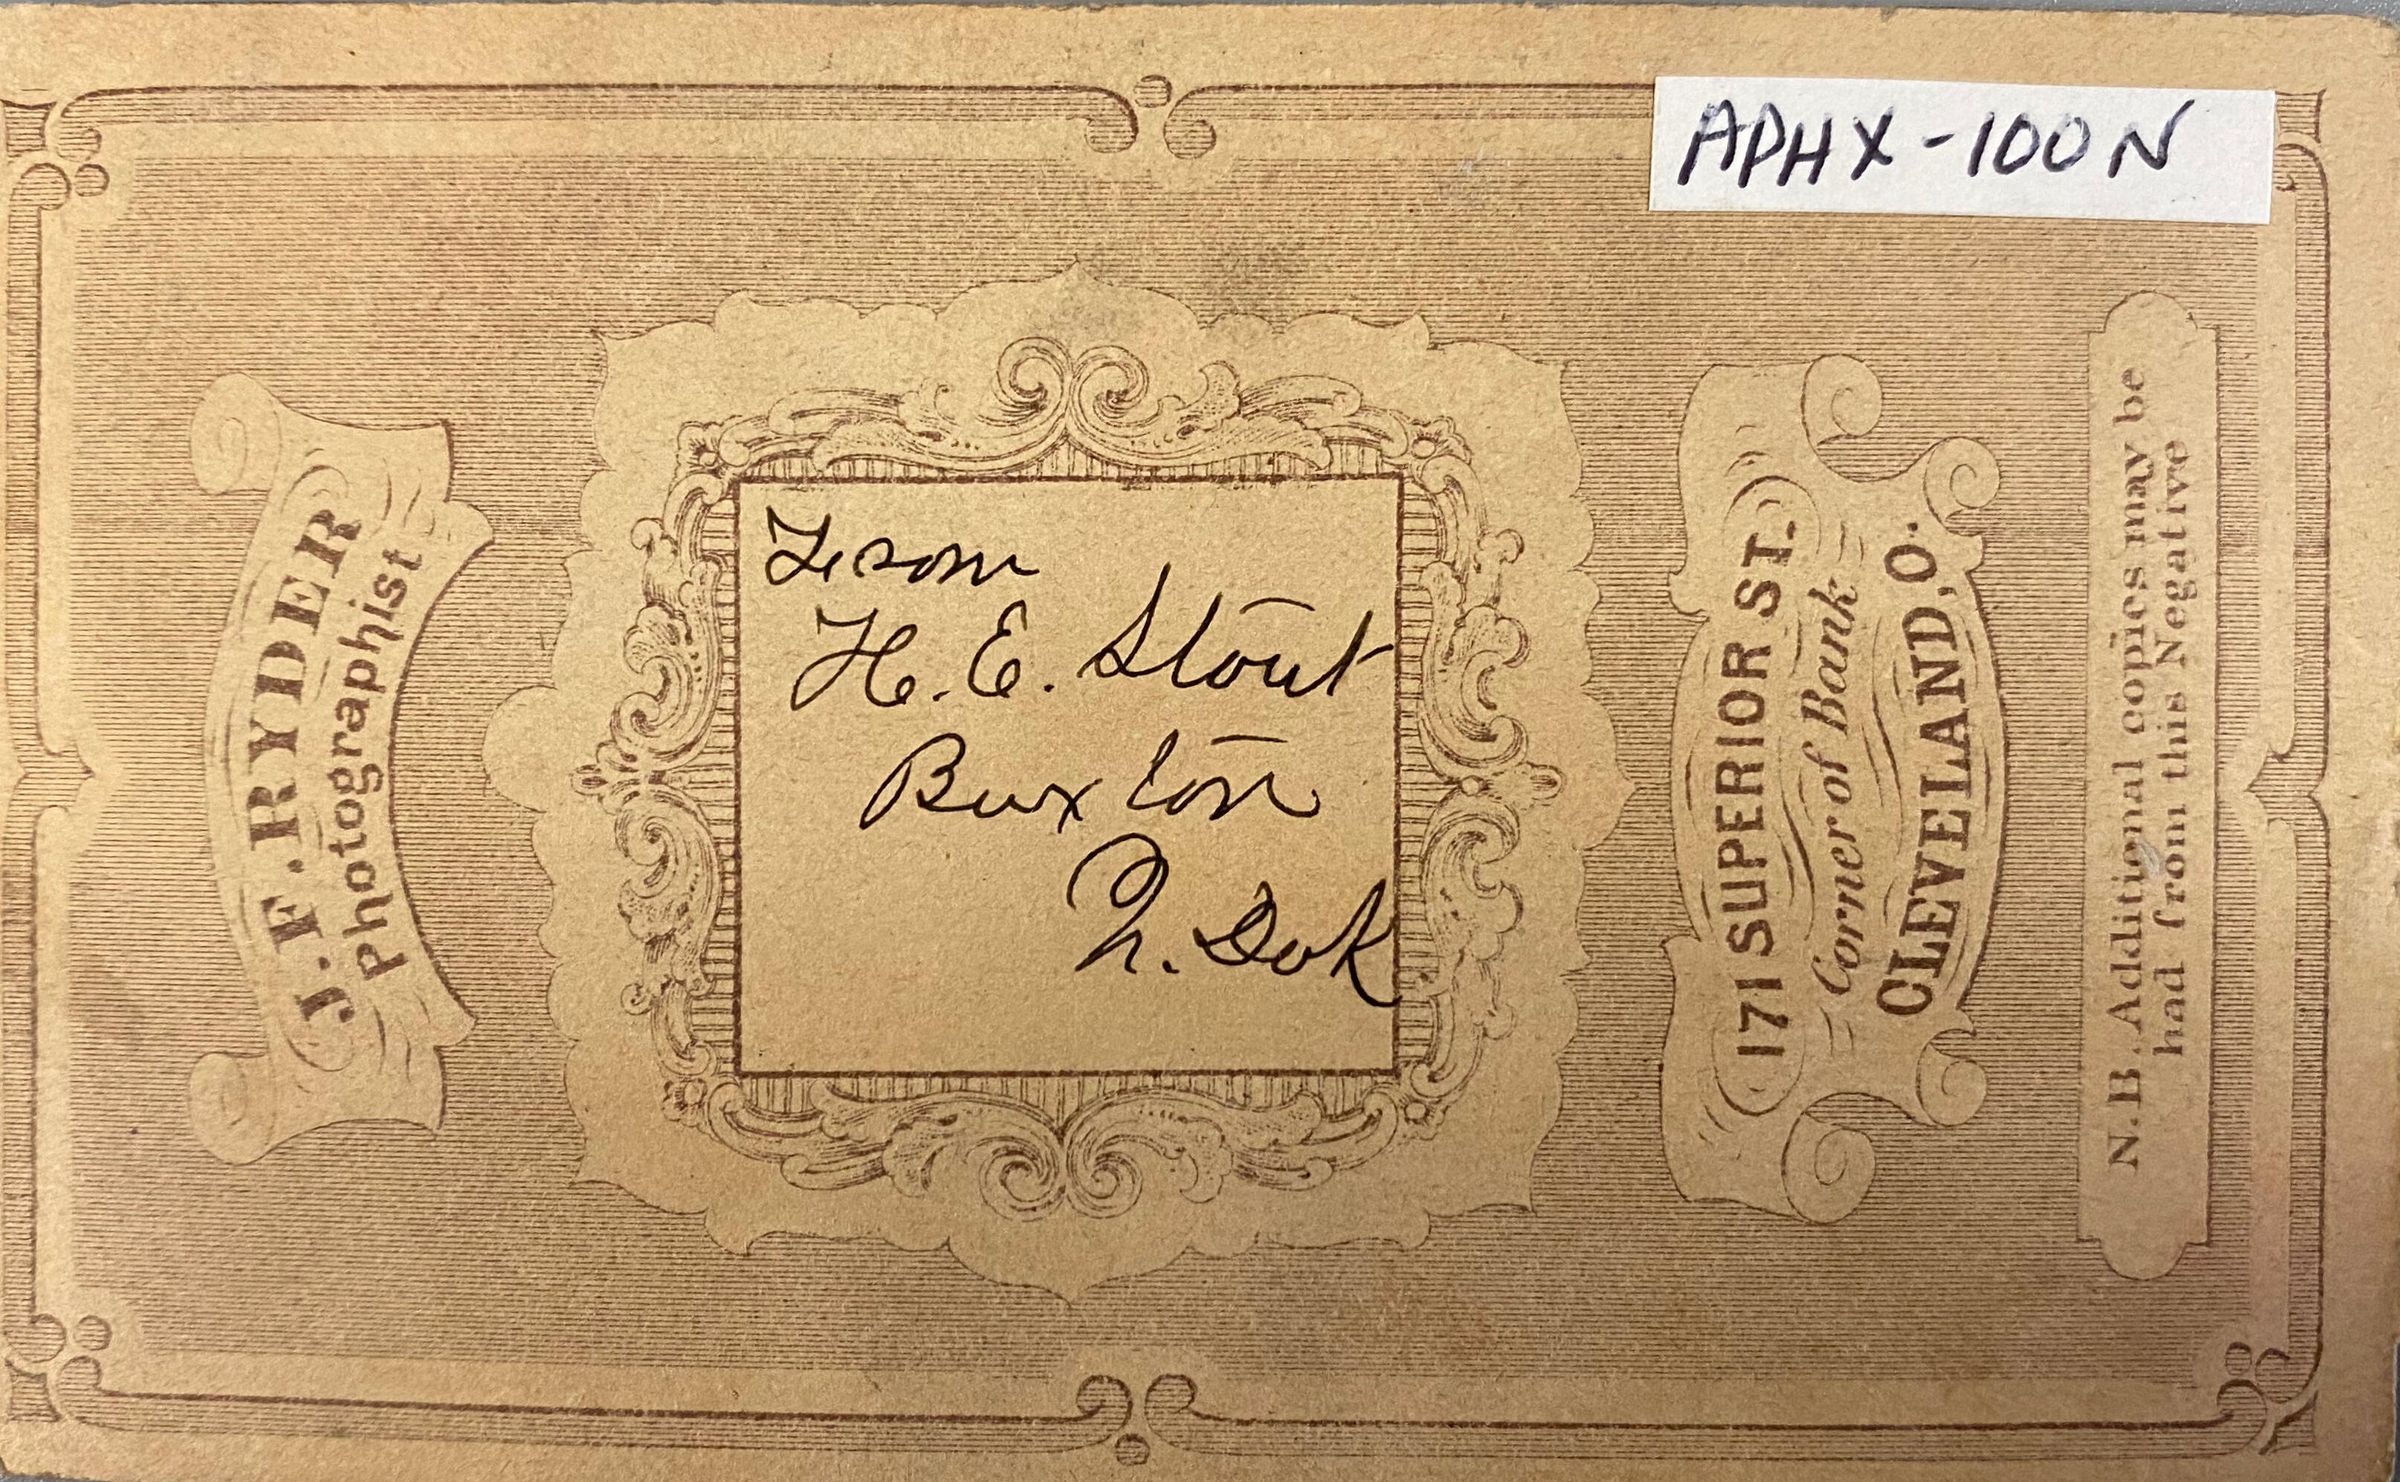 APHX-100N
J. F. RYDER
Photographist
From
H. E. Stout
Buxton
N. Dak
171 SUPERIOR ST.
Corner of Bank
CLEVELAND, O.
N.B. Additional copies may be
had from this Negative